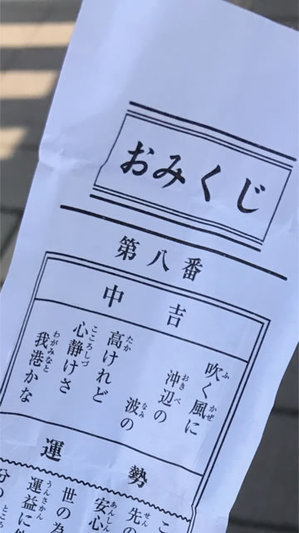 おみくじ
第八番
中吉
吹く風に
沖辺の
波の
高けれど
心静けさ
我港かな
運勢
こ
先の
安心
世の為
運益に
分の